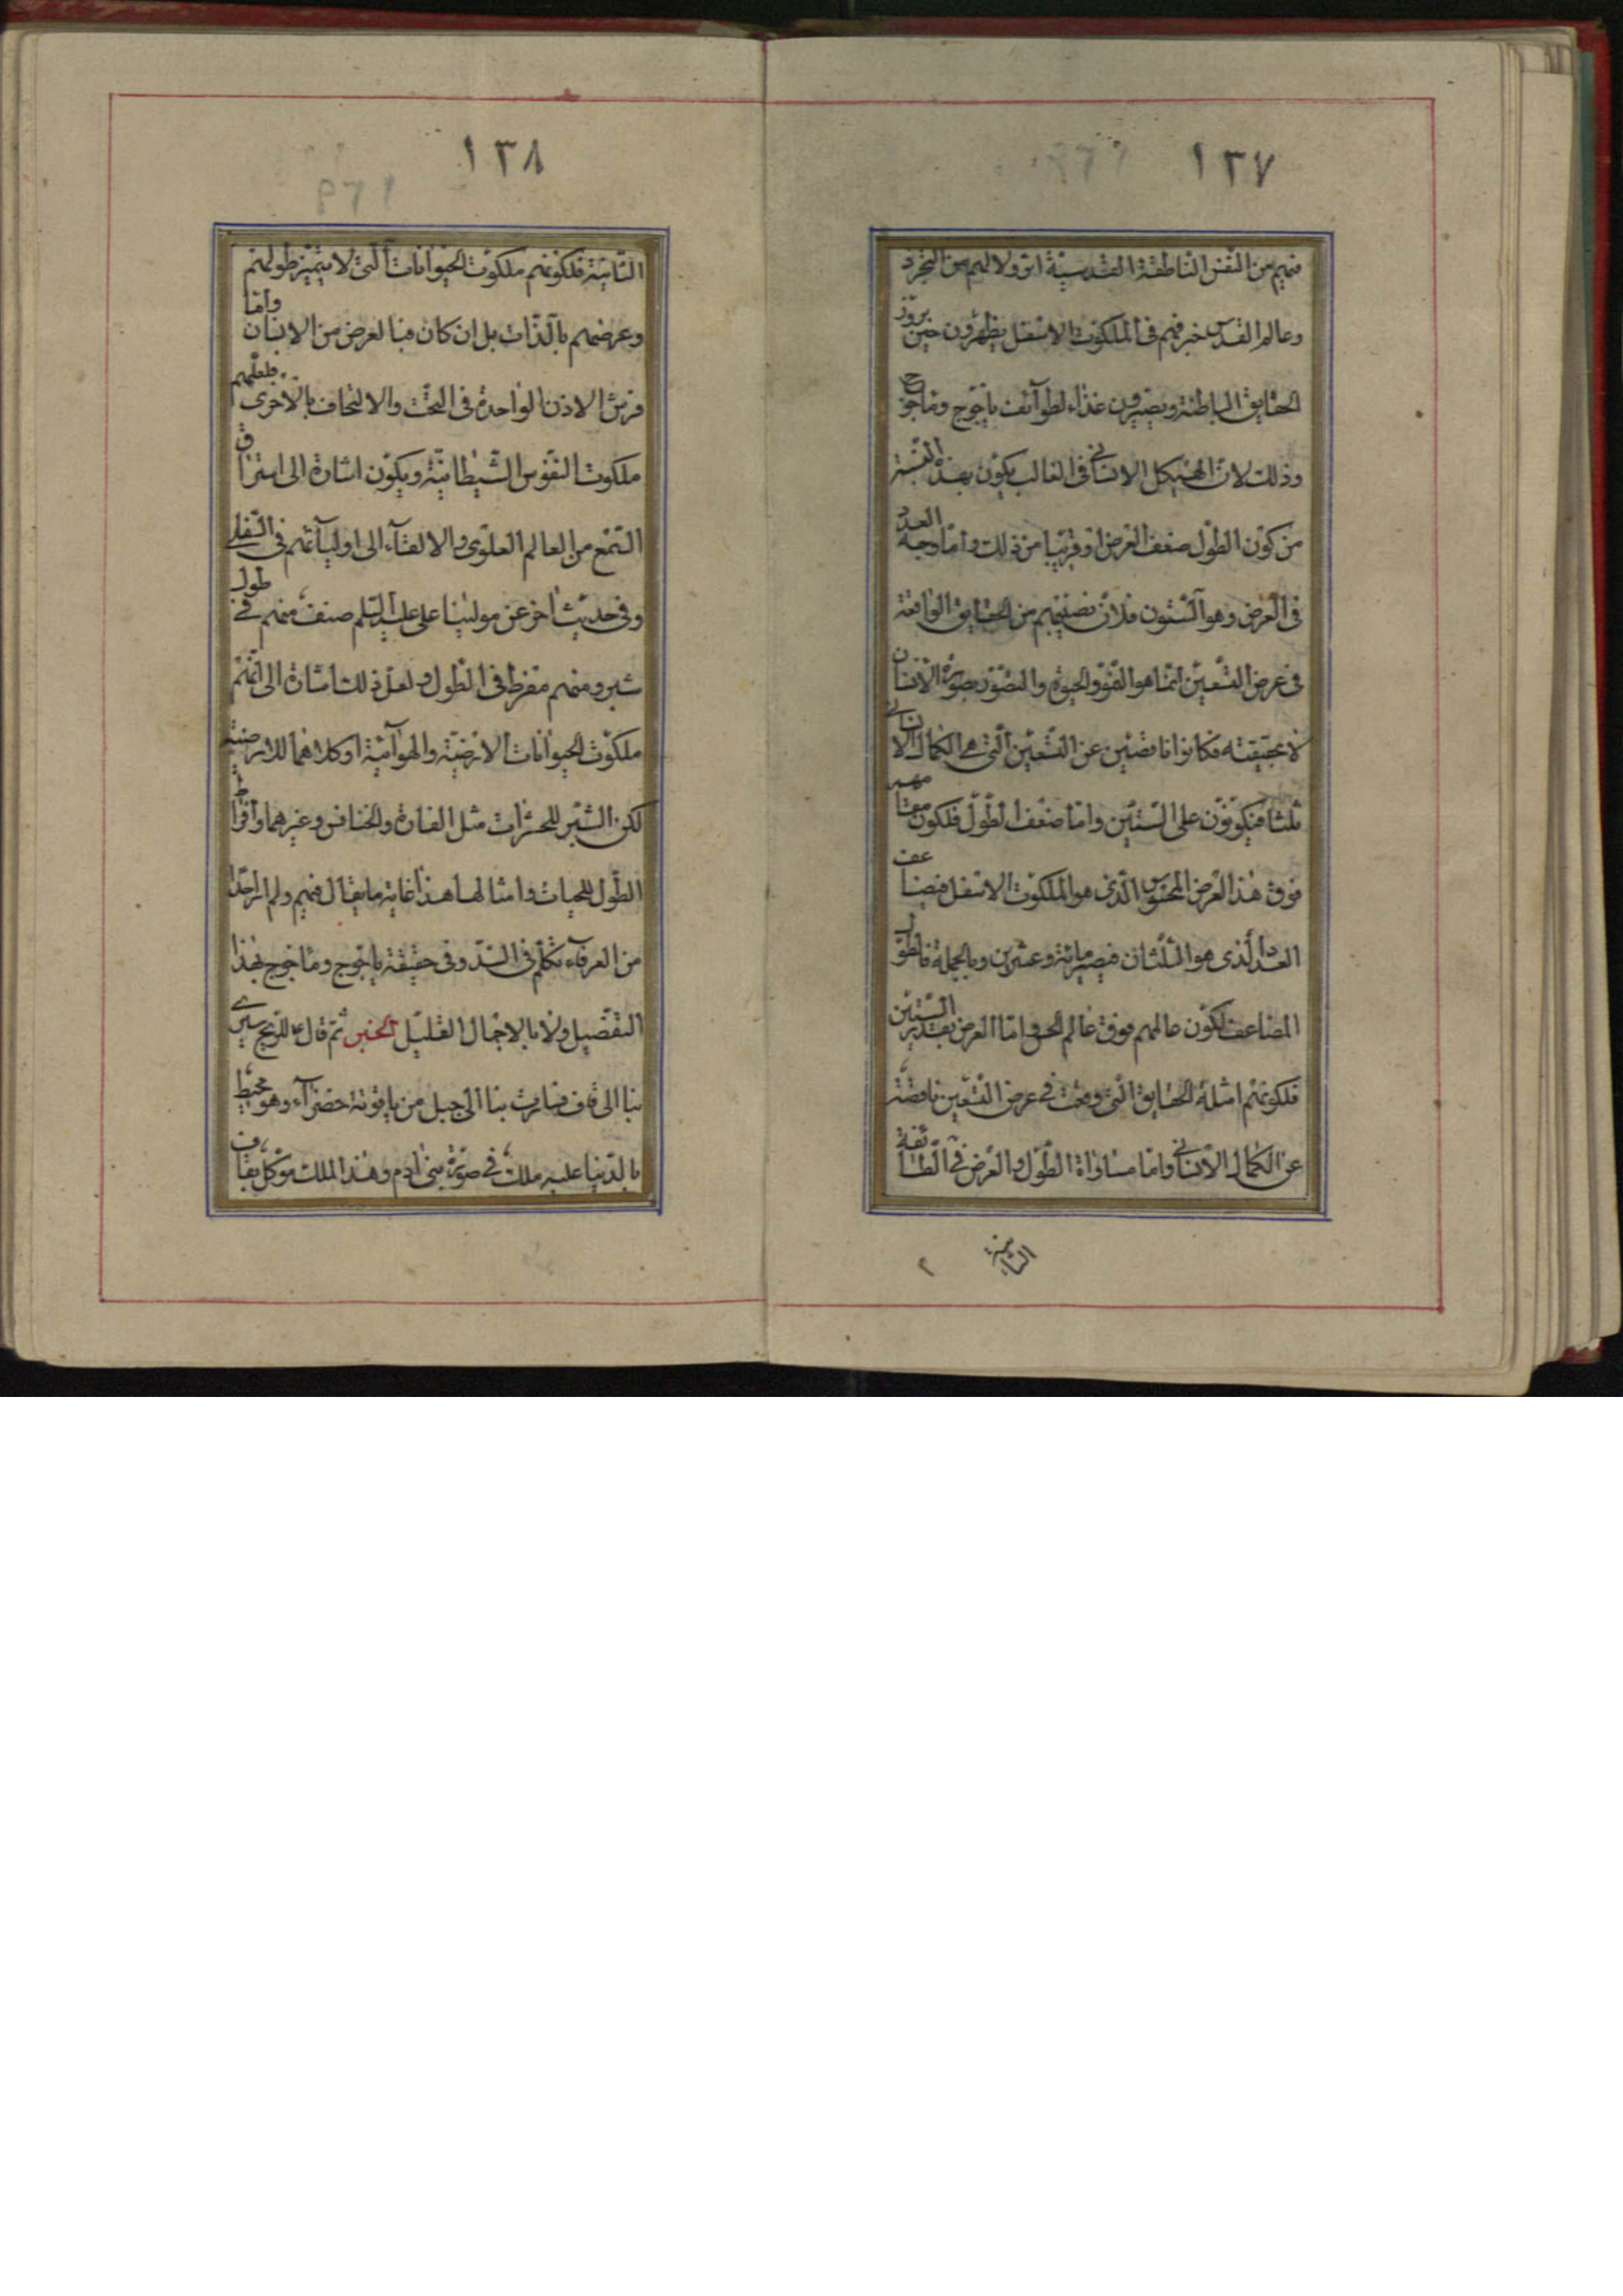 ١٣٧
فيهم من النفس الناطقة القدسية اثر ولا لهم من التجرد
وعالم القدس خبر فهم في الملكوت الاسفل يظهرون حين بروز
الحقايق الباطنة ويصيرون غذاء لطوائف ياجوج وماجوج
وذلك لان الهيكل الانساني في الغالب يكون بهذه النسبة
من كون الطول ضعف العرض او قريبا من ذلك واما وجه العدد
في العرض وهو الستون فلان نصيبهم من الحقايق الواقعة
في عرض التعين انما هو القوة والحيوة والتصور بصورة الانسان
لا بحقيقته فكانوا ناقصين عن التسعين التي هي الكمال الانساني
ثلثا فيكونون على الستين واما ضعف الطول فلكون مقامهم
فوق هذا العرض المحسوس الذي هو الملكوت الاسفل فيضاعف
العدد الذي هو الثلثان فيصير مائة وعشرين وبالجملة فالطول
المضاعف لكون عالمهم فوق عالم الحس واما العرض بقدر الستين
فلكونهم امثلة الحقايق التي وقعت في عرض التعين ناقصة
عن الكمال الانساني واما مساواة الطول والعرض في الطائفة
١٣٨
الثانية فلكونهم ملكوت الحيوانات التي لا يتميز طولهم
وعرضهم بالذات بل ان كان فبالعرض من الانسان واما
فرش الاذن الواحدة في التحت والالتحاف بالاخرى فلعلهم
ملكوت النفوس الشيطانية ويكون اشارة الى استراق
السمع من العالم العلوي والالقاء الى اوليائهم في السفلي
وفي حديث اخر عن مولينا علي عليه السلم صنف منهم في طول
شبر ومنهم مفرط في الطول ولعل ذلك اشارة الى انهم
ملكوت الحيوانات الارضية والهوائية او كلاهما للارضية
لكن الشبر للحشرات مثل الفارة والخنافس وغيرهما وافراط
الطول للحيات وامثالها هذا غاية ما يقال فيهم ولم ار احدا
من العرفاء تكلم في السد وفي حقيقة ياجوج وماجوج بهذا
التفصيل ولا بالاجمال القليل الخبر ثم قال ع للريح سيري
بنا الى قاف فسارت بنا الى جبل من ياقوتة خضراء وهو محيط
بالدنيا عليه ملك في صورة بني ادم وهذا الملك موكل بقاف